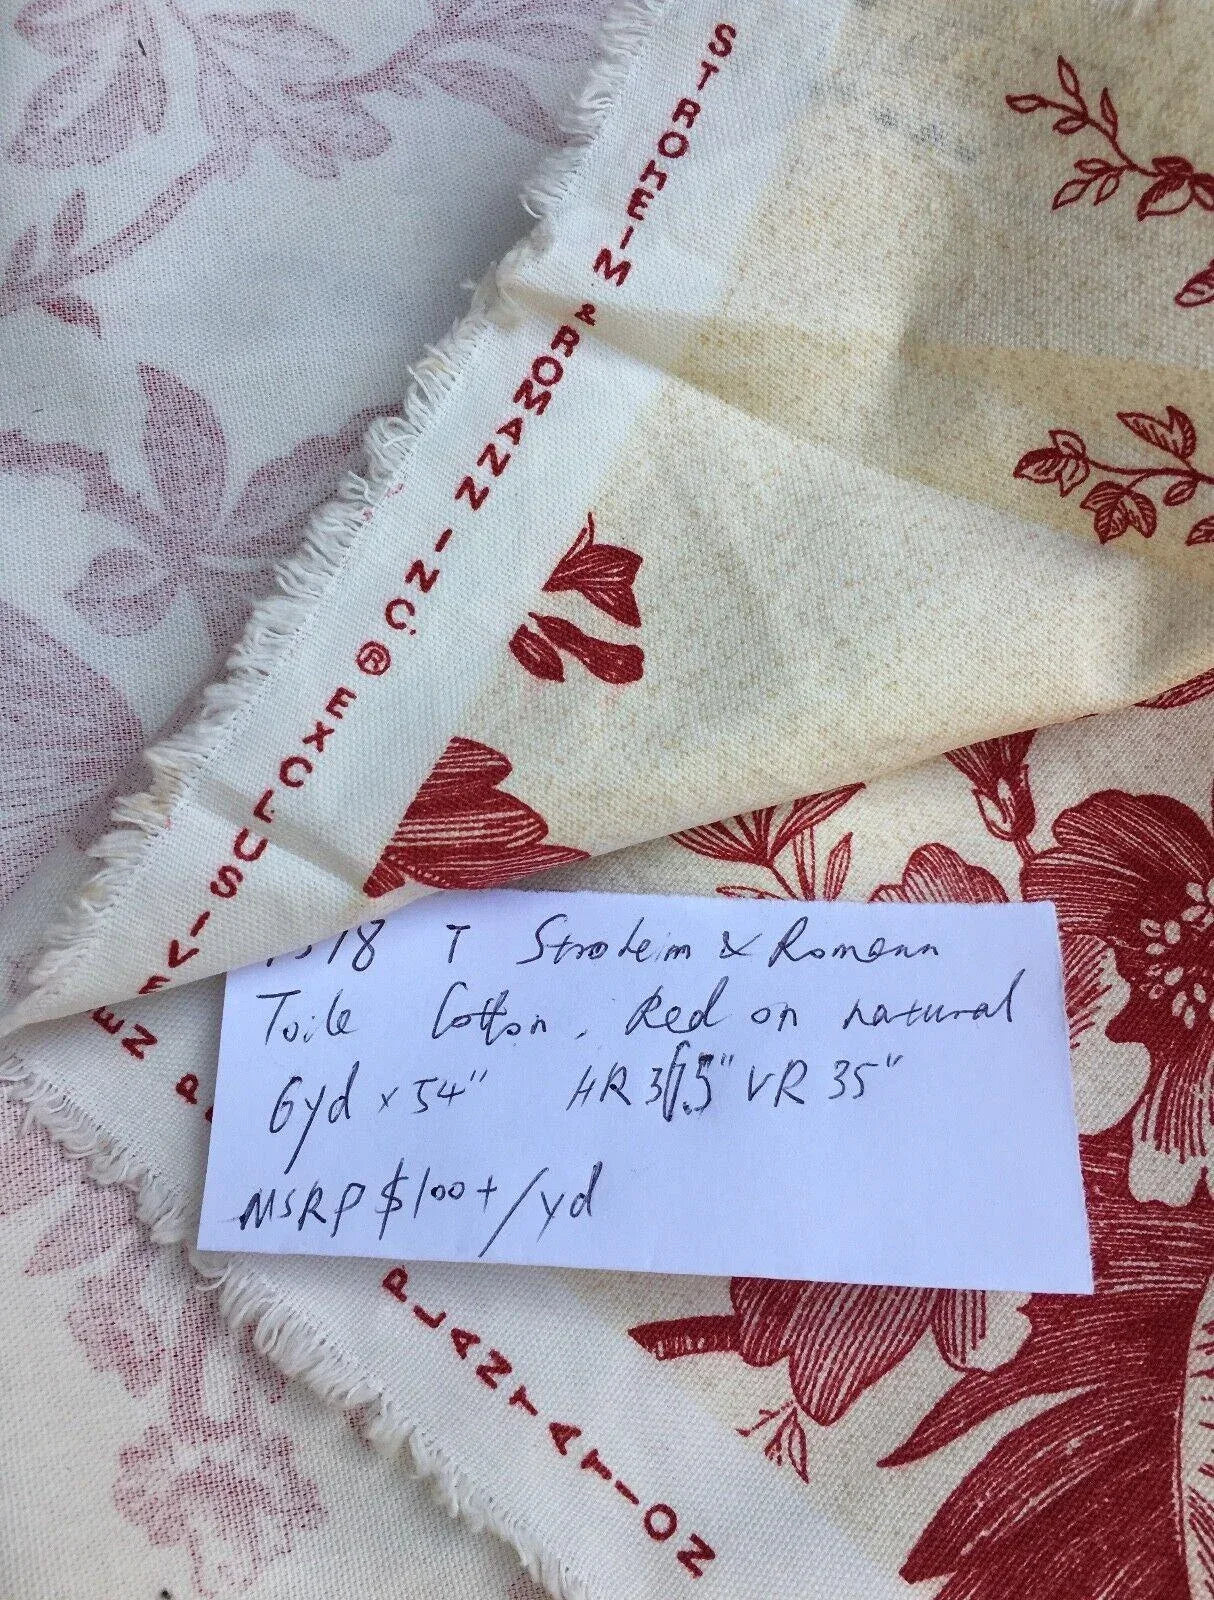 STROHEIM & ROMANN INC. ® EXCLUSIVE
EN P
PLANTATION
T Stroheim & Romann
Toile Cotton, Red on natural
6yd x 54" HR 37.5" VR 35"
MSRP $100+/yd